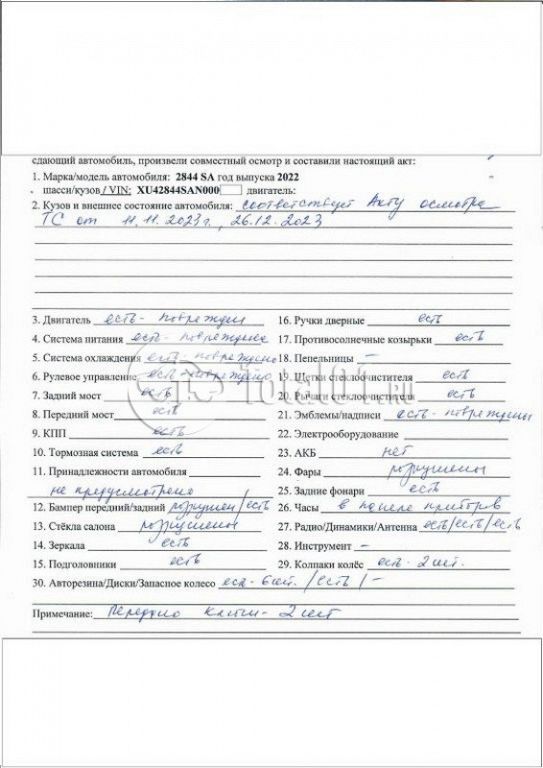 сдающий автомобиль, произвели совместный осмотр и составили настоящий акт:
1. Марка/модель автомобиля: 2844 SA год выпуска 2022
шасси/кузов / VIN: XU42844SAN000 двигатель:
2. Кузов и внешнее состояние автомобиля: соответствует Акту осмотра
ТС от 11.11.2023г., 26.12.2023
3. Двигатель есть - поврежден
16. Ручки дверные есть
4. Система питания есть - повреждена
17. Противосолнечные козырьки есть
5. Система охлаждения есть - повреждено
18. Пепельницы –
6. Рулевое управление есть - повреждено
19. Щетки стеклоочистителя есть
7. Задний мост есть
20. Рычаги стеклоочистителя есть
8. Передний мост есть
21. Эмблемы/надписи есть - повреждены
9. КПП есть
22. Электрооборудование –
10. Тормозная система есть
23. АКБ нет
11. Принадлежности автомобиля
не предусмотрено
24. Фары разрушены
25. Задние фонари есть
12. Бампер передний/задний разрушен/есть
26. Часы в панели приборов
13. Стёкла салона разрушены
27. Радио/Динамики/Антенна есть/есть/есть
14. Зеркала есть
28. Инструмент –
15. Подголовники есть
29. Колпаки колёс есть - 2 шт.
30. Авторезина/Диски/Запасное колесо есть - 6 шт. / есть / –
Примечание: Передано ключи - 2 шт
total01.ru